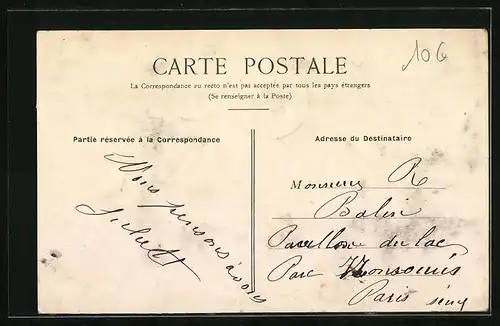 10G
CARTE POSTALE
La Correspondance au recto n'est pas acceptée par tous les pays étrangers
(Se renseigner à la Poste)
Partie réservée à la Correspondance
Adresse du Destinataire
Nous pensons à vous
Monsieur R
Balin
Pavillon du lac
Parc Monsouris
Paris